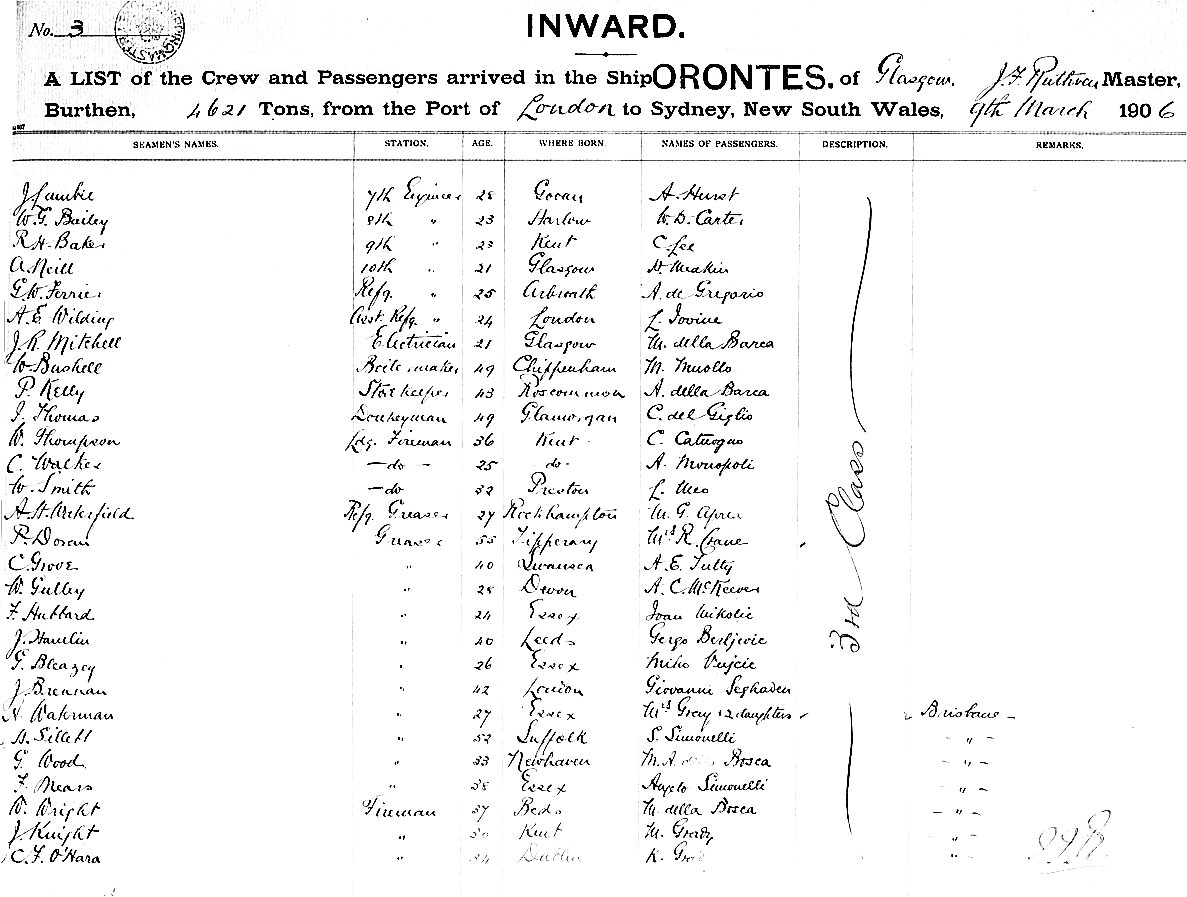 No. 3
INWARD.
A LIST of the Crew and Passengers arrived in the Ship ORONTES. of Glasgow. J.F. Ruthven Master,
Burthen, 4621 Tons, from the Port of London to Sydney, New South Wales, 9th March 1906
SEAMEN'S NAMES. STATION. AGE. WHERE BORN. NAMES OF PASSENGERS. DESCRIPTION. REMARKS.
J Lambie 7th Engineer 28 Govan A Hurst
W.G. Bailey 8th " 23 Harlow W.D. Carter
R.H. Baker 9th " 23 Kent C. Lee
A Neill 10th " 21 Glasgow D. Meakin
G.W. Ferrier Refg. " 25 Arbroath A. de Gregorio
A.E. Wilding Asst. Refg. " 24 London L. Iovine
J.R. Mitchell Electrician 21 Glasgow M. della Barca
W. Bushell Boilermaker 49 Chippenham M. Muollo
P. Kelly Storekeeper 43 Roscommon A. della Barca
J. Thomas Donkeyman 49 Glamorgan C. del Giglio
W. Thompson Ldg. Fireman 36 Kent C. Catuogno
C. Walker - do - 25 do - A. Monopoli
W. Smith - do 32 Preston L. Meo
A.H. Waterfield Refg. Greaser 27 Rockhampton M. G. Aprea
P. Doran Greaser 55 Tipperary Mrs R. Crane
C. Grove " 40 Swansea A.E. Tutty
W. Gulley " 28 Devon A.C. McKeever
F. Hubbard " 24 Essex Ivan Nikolic
J. Hamlin " 40 Leeds Gergo Berljevic
G. Bleazey " 26 Essex Miho Vujcic
J. Brennan " 42 London Giovanni Seghaden
3rd Class
A. Waterman " 27 Essex Mrs Grey & 2 daughters Brisbane -
H. Sillett " 52 Suffolk S. Simonelli - " -
G. Wood " 33 Newhaven M.A. della Bosca - " -
F. Mears " 38 Essex Angelo Simonelli - " -
W. Wright Fireman 37 Beds M. della Bosca - " -
J. Knight " 30 Kent M. Grady - " -
C.F. O'Hara " 34 Dublin K. - " -